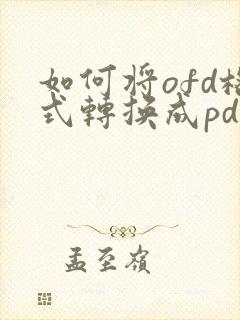 如何将ofd格
式轉換成pd
孟至嶺